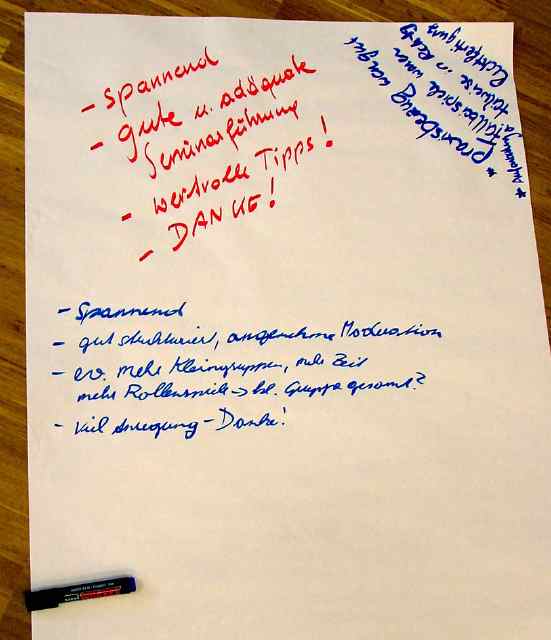 - spannend
- gute u. adäquate
Seminarführung
- wertvolle Tipps!
- DANKE!
- spannend
- gut strukturiert, angenehme Moderation
- ev. mehr Kleingruppen, mehr Zeit
mehr Rollenspiele -> kl. Gruppe gesamt?
- viel Anregung - Danke!
* praxisbezug war gut
* Fallbeispiele waren
teilweise in Rechtfertigung